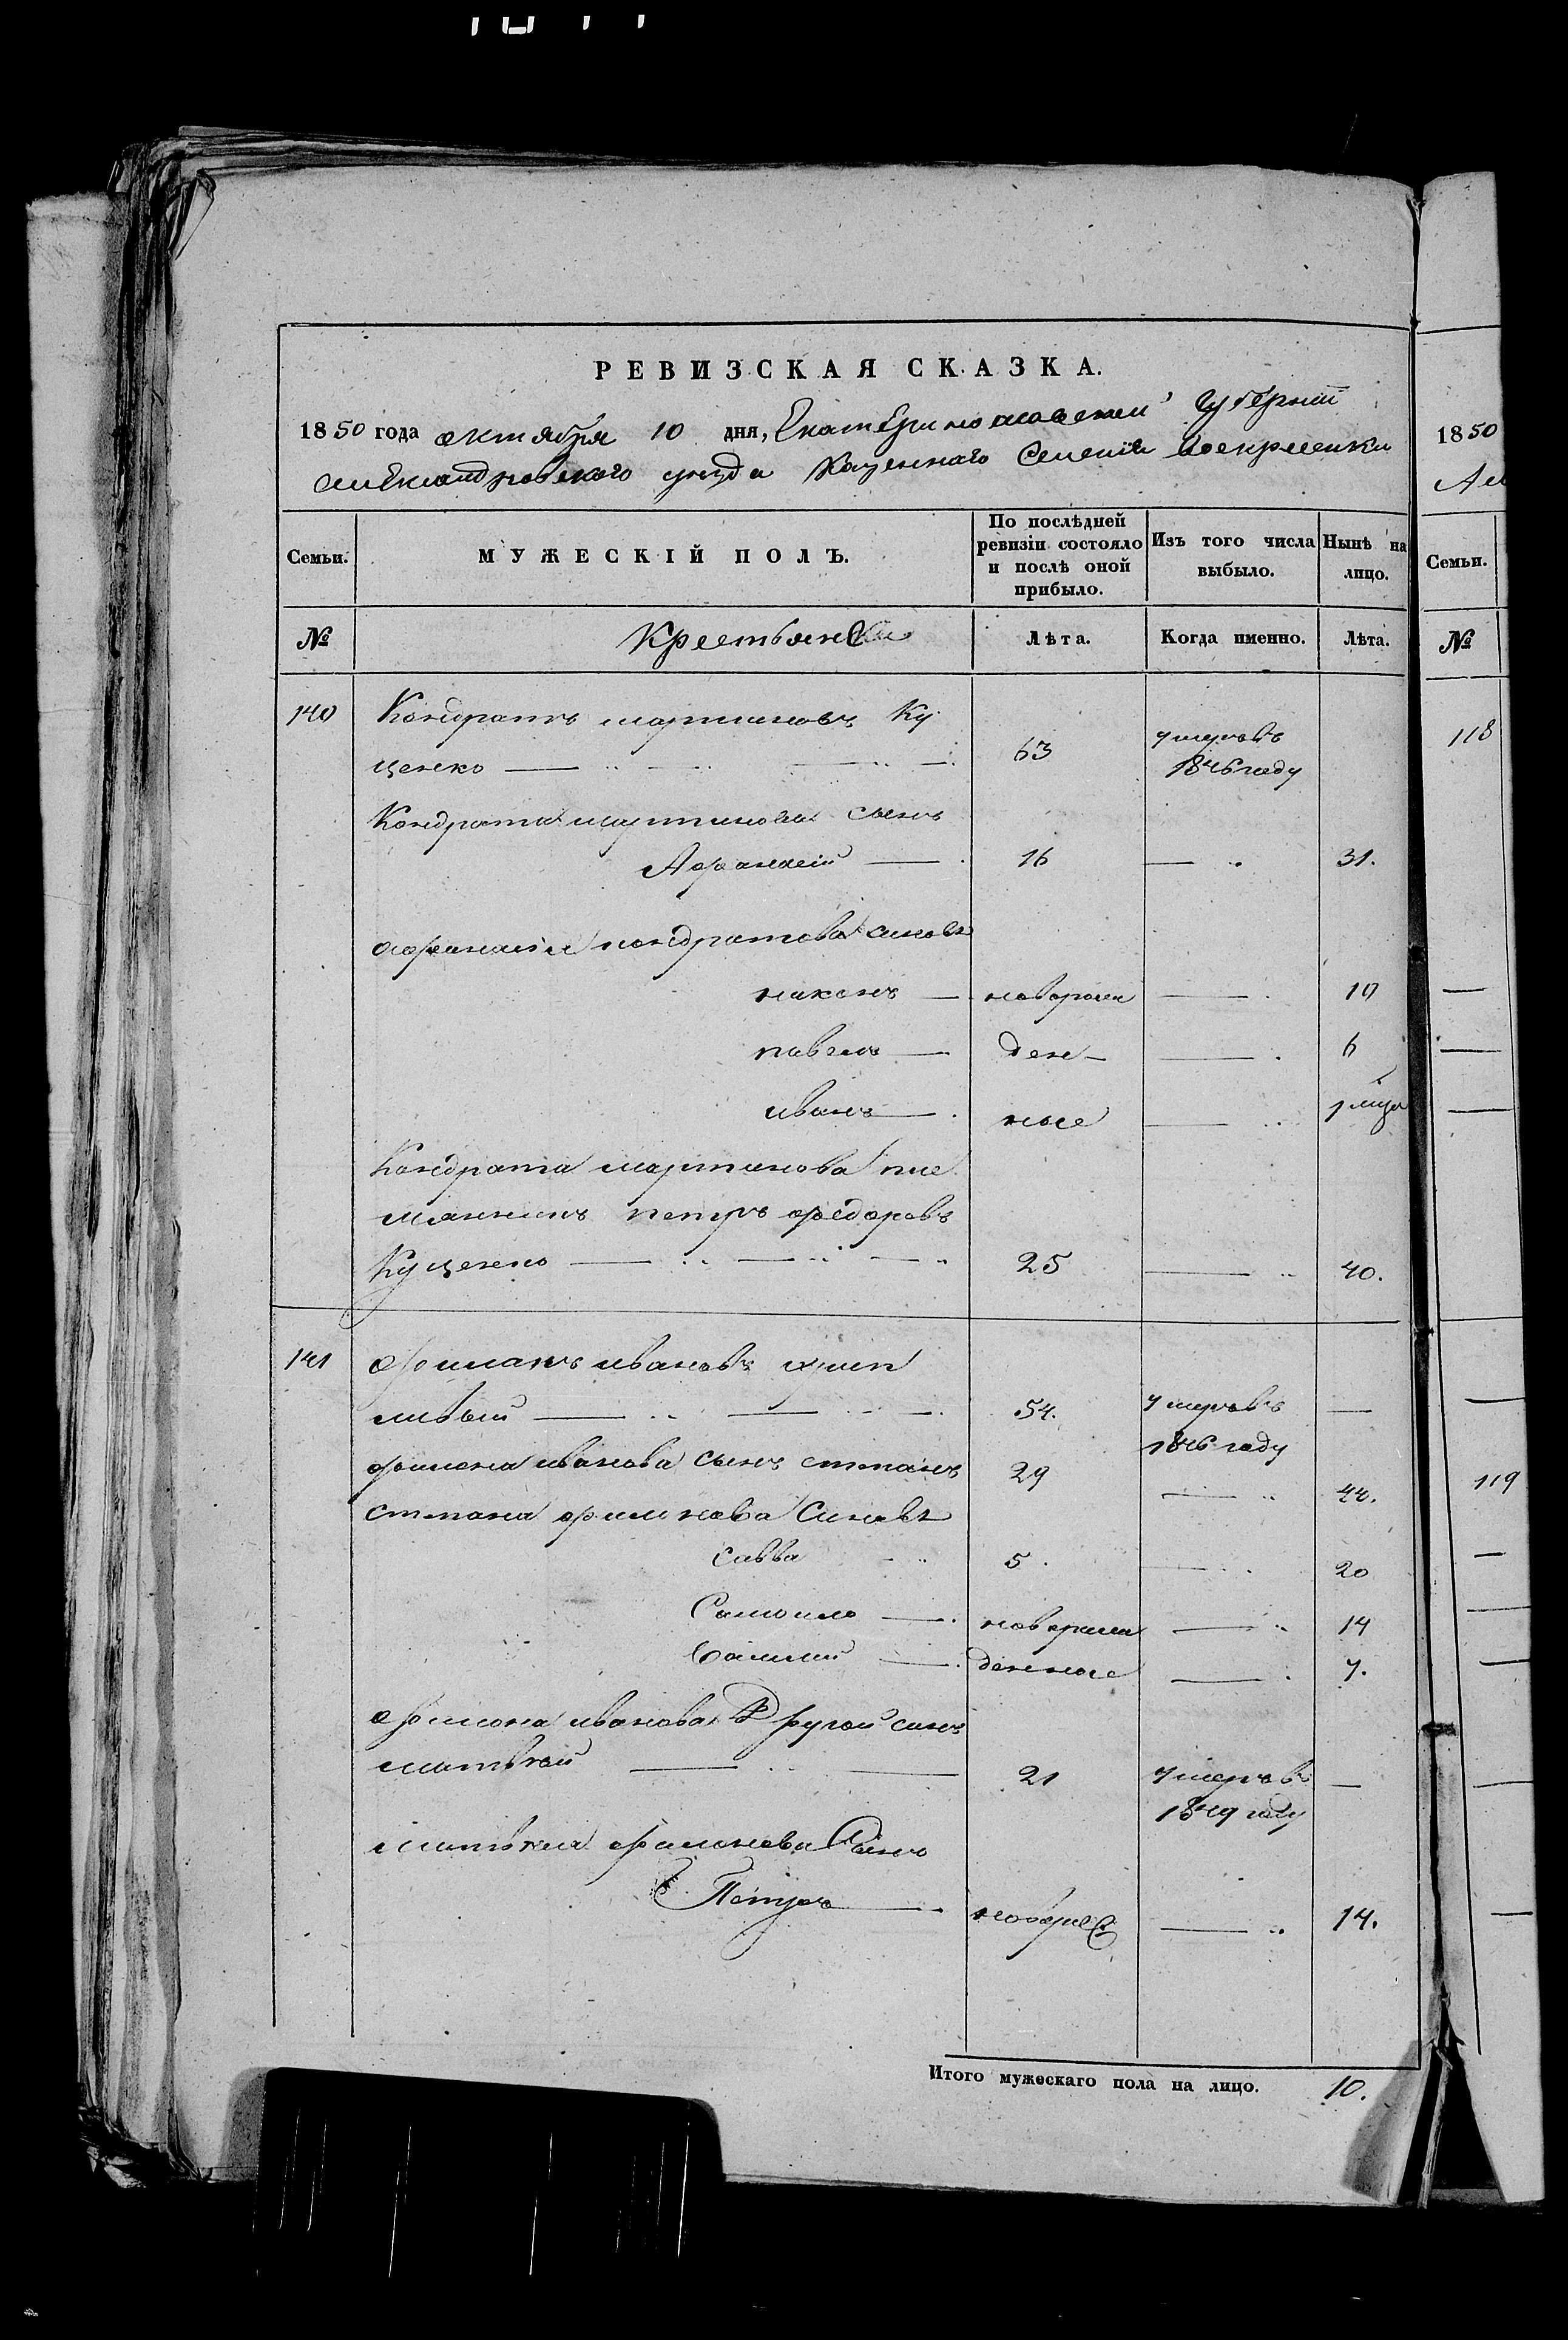 РЕВИЗСКАЯ СКАЗКА.
1850 года октября 10 дня, Екатеринославской Губернии
Александровского уезда Казенного Селения Воскресенки
Семьи. МУЖЕСКІЙ ПОЛЪ. По послѣдней ревизіи состояло и послѣ оной прибыло. Изъ того числа выбыло. Нынѣ на лицо.
№ Крестьянски Лѣта. Когда именно. Лѣта.
140 Кондратъ мартиновъ Ку
ценко 63 умеръ въ 1846 году
Кондрата мартинова сынъ
Афанасій 16 31.
афанасія кондратова синовя
никонъ новорож 10
павелъ ден 6
иванъ ные 1 меца
Кондрата мартинова пле
мянникъ петръ федоровъ
Куценко 25 40.
141 филионъ ивановъ
ливый 54. умеръ въ 1846 году
филиона иванова сынъ степанъ 29 44.
степана филионова Синовя
Савва 5 20
Самоило новорож 14
Василий денные 7.
филиона иванова Другой синъ
матвѣй 21 умеръ в 1849 году
матвѣя филионова Синъ
Петръ новорож 14.
Итого мужескаго пола на лицо. 10.
1850
Ал
Семьи.
№
118
119